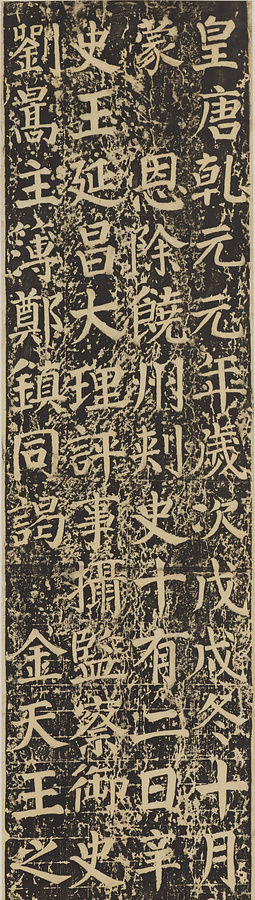 皇唐乾元元年歲次戊戌冬十月
蒙恩除饒州刾史十有二日辛
史王延昌大理評事攝監察御史
劉暠主簿鄭鎮同謁金天王之